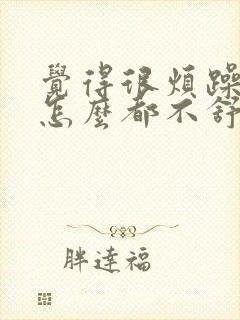 覺得很煩躁
怎麼都不舒
胖達福